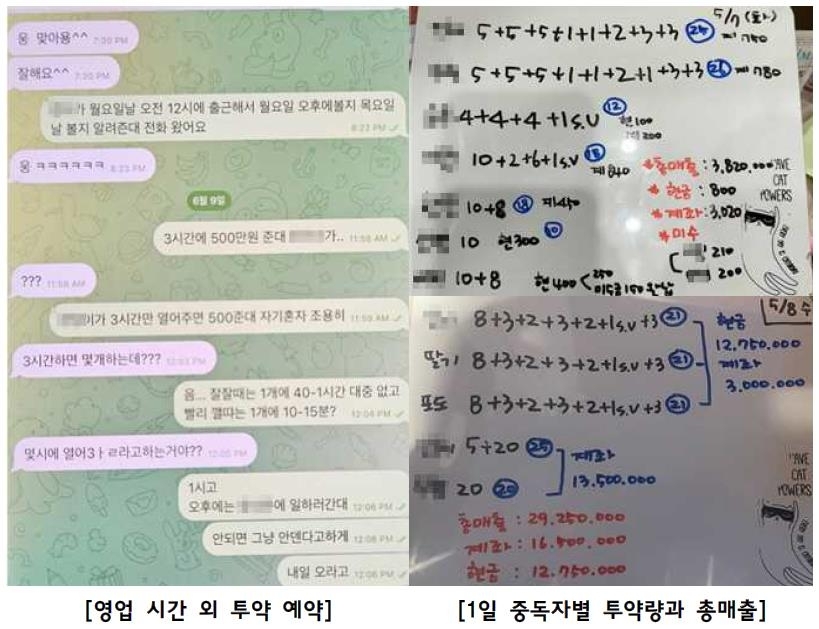 웅 맞아용^^ 7:30 PM
잘해요^^ 7:30 PM
가 월요일날 오전 12시에 출근해서 월요일 오후에볼지 목요일
날 볼지 알려준대 전화 왔어요 8:23 PM
웅 ㅋㅋㅋㅋㅋㅋ 8:23 PM
6월 9일
3시간에 500만원 준대 가.. 11:58 AM
??? 11:58 AM
이가 3시간만 열어주면 500준대 자기혼자 조용히 11:59 AM
3시간하면 몇개하는데??? 12:03 PM
음... 잘잘때는 1개에 40-1시간 대중 없고
빨리 깰땨는 1개에 10-15분? 12:04 PM
몇시에 열어3ㅏㄹ라고하는거야?? 12:05 PM
1시고
오후에는 에 일하러간대 12:06 PM
안되면 그냥 안덴다고하게 12:06 PM
내일 오라고 12:06 PM
[영업 시간 외 투약 예약]
5/7 (화)
5+5+5+1+1+2+3+3 25 계 750
5+5+5+1+1+2+1+3+3 26 계 780
4+4+4+1s.v 12 현100
200
10+2+6+1s.v 18 계 840
10+8 18 계450
10 현300 10
10+8 현400 250
미수금150
*총매출 : 3,820,000
*현금 : 800
*계좌 : 3,020
*미수
210
200
CAT
POWERS
5/8 수
8+3+2+3+2+1s.v+3 21
딸기 8+3+2+3+2+1s.v+3 21
포도 8+3+2+3+2+1s.v+3 21
현금
12.750.000
계좌
3.000.000
5+20 25
20 20
계좌
13.500.000
총매출 : 29.250.000
계좌 : 16.500.000
현금 : 12.750.000
CAT
POWERS
[1일 중독자별 투약량과 총매출]